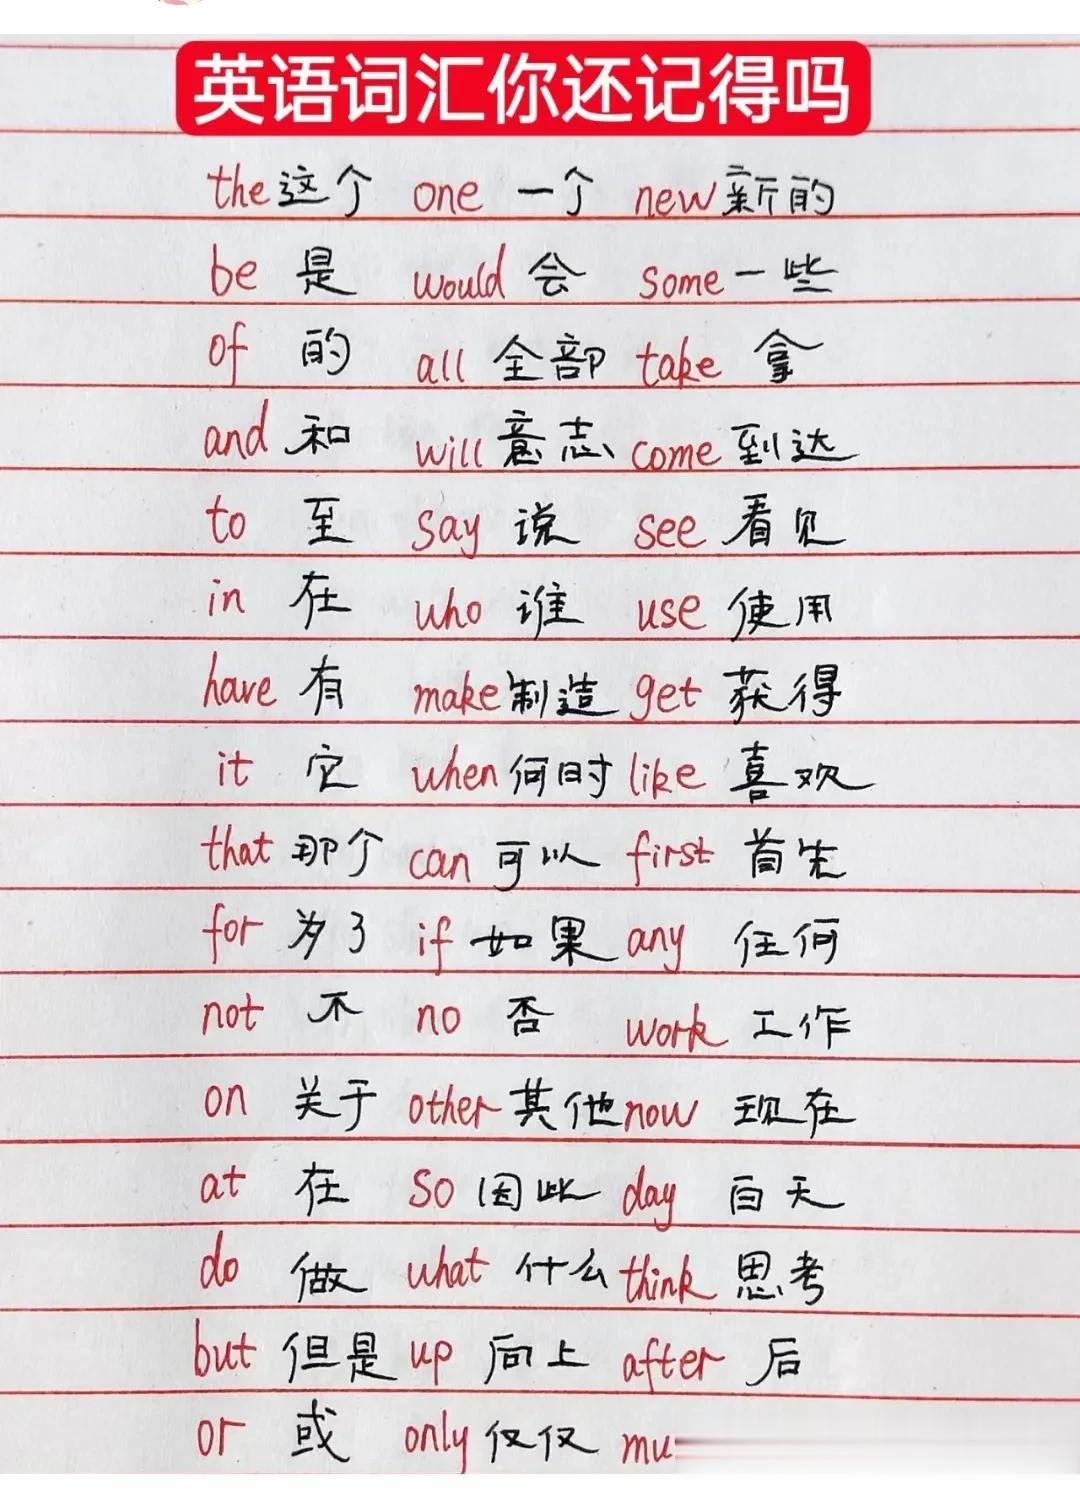 英语词汇你还记得吗
the这个 one 一个 new新的
be 是 would 会 some 一些
of 的 all 全部 take 拿
and 和 will 意志 come 到达
to 至 say 说 see 看见
in 在 who 谁 use 使用
have 有 make 制造 get 获得
it 它 when 何时 like 喜欢
that 那个 can 可以 first 首先
for 为了 if 如果 any 任何
not 不 no 否 work 工作
on 关于 other 其他 now 现在
at 在 so 因此 day 白天
do 做 what 什么 think 思考
but 但是 up 向上 after 后
or 或 only 仅仅 mu